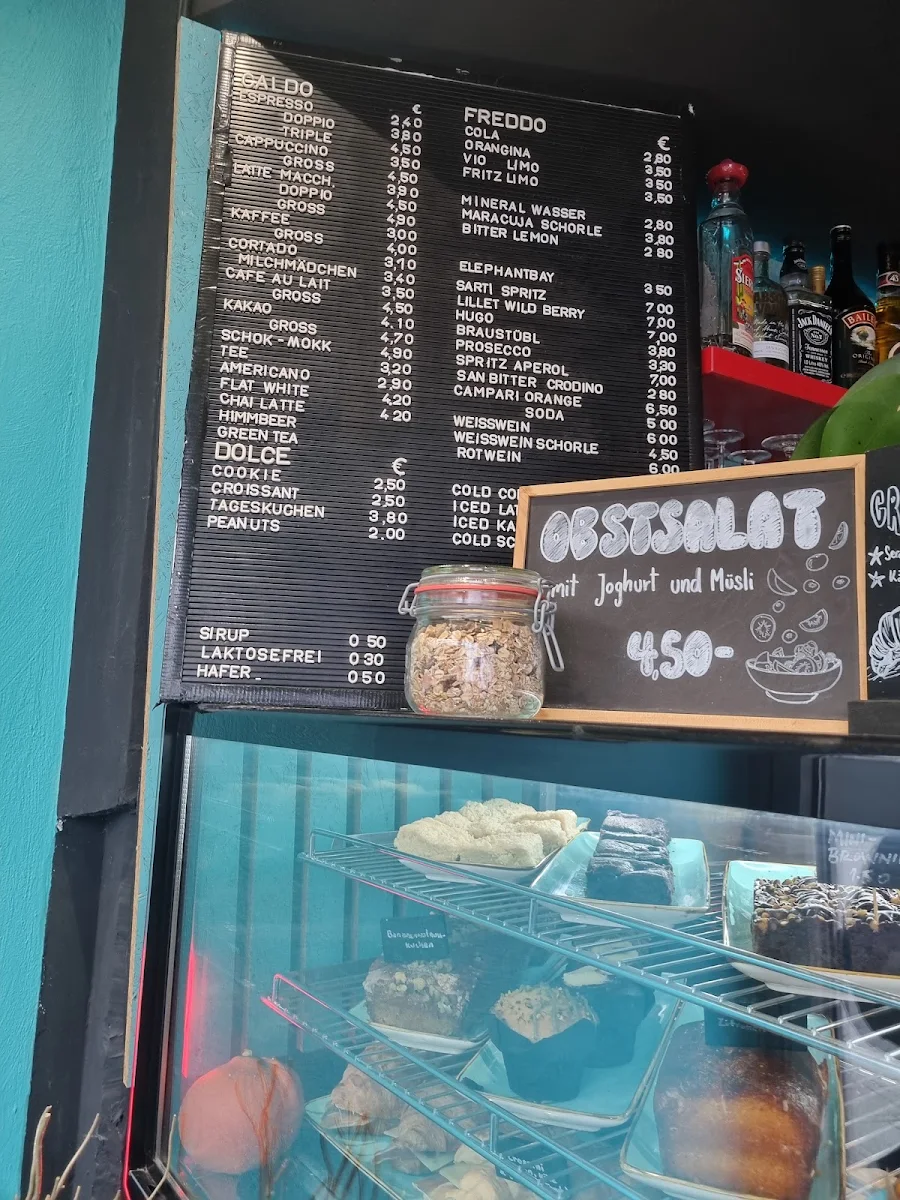 CALDO
ESPRESSO
DOPPIO
TRIPLE
CAPPUCCINO
GROSS
LATTE MACCH,
DOPPIO
GROSS
KAFFEE
GROSS
CORTADO
MILCHMÄDCHEN
CAFE AU LAIT
GROSS
KAKAO
GROSS
SCHOK-MOKK
TEE
AMERICANO
FLAT WHITE
CHAI LATTE
HIMMBEER
GREEN TEA
€
2,40
3,80
4,50
3,50
4,50
3,90
4,50
4,90
3,00
4,00
3,10
3,40
3,50
4,50
4.10
4,70
4,90
3,20
2,90
4,20
4 20
DOLCE €
COOKIE 2,50
CROISSANT 2,50
TAGESKUCHEN 3,80
PEANUTS 2.00
SIRUP 0 50
LAKTOSEFREI 0 30
HAFER 0 50
FREDDO €
COLA 2,80
ORANGINA 3,50
VIO LIMO 3 50
FRITZ LIMO 3,50
MINERAL WASSER 2,80
MARACUJA SCHORLE 3,80
BITTER LEMON 2 80
ELEPHANTBAY 3 50
SARTI SPRITZ 7 00
LILLET WILD BERRY 7,00
HUGO 7,00
BRAUSTÜBL 3,80
PROSECCO 3,30
SPRITZ APEROL 7,00
SANBITTER CRODINO 2 80
CAMPARI ORANGE 6,50
SODA 5 00
WEISSWEIN 6 00
WEISSWEIN SCHORLE 4,50
ROTWEIN 6 00
COLD
ICED
ICED
COLD
OBSTSALAT
mit Joghurt und Müsli
4,50-
JACK DANIEL'S
Tennessee
WHISKEY
MINI-